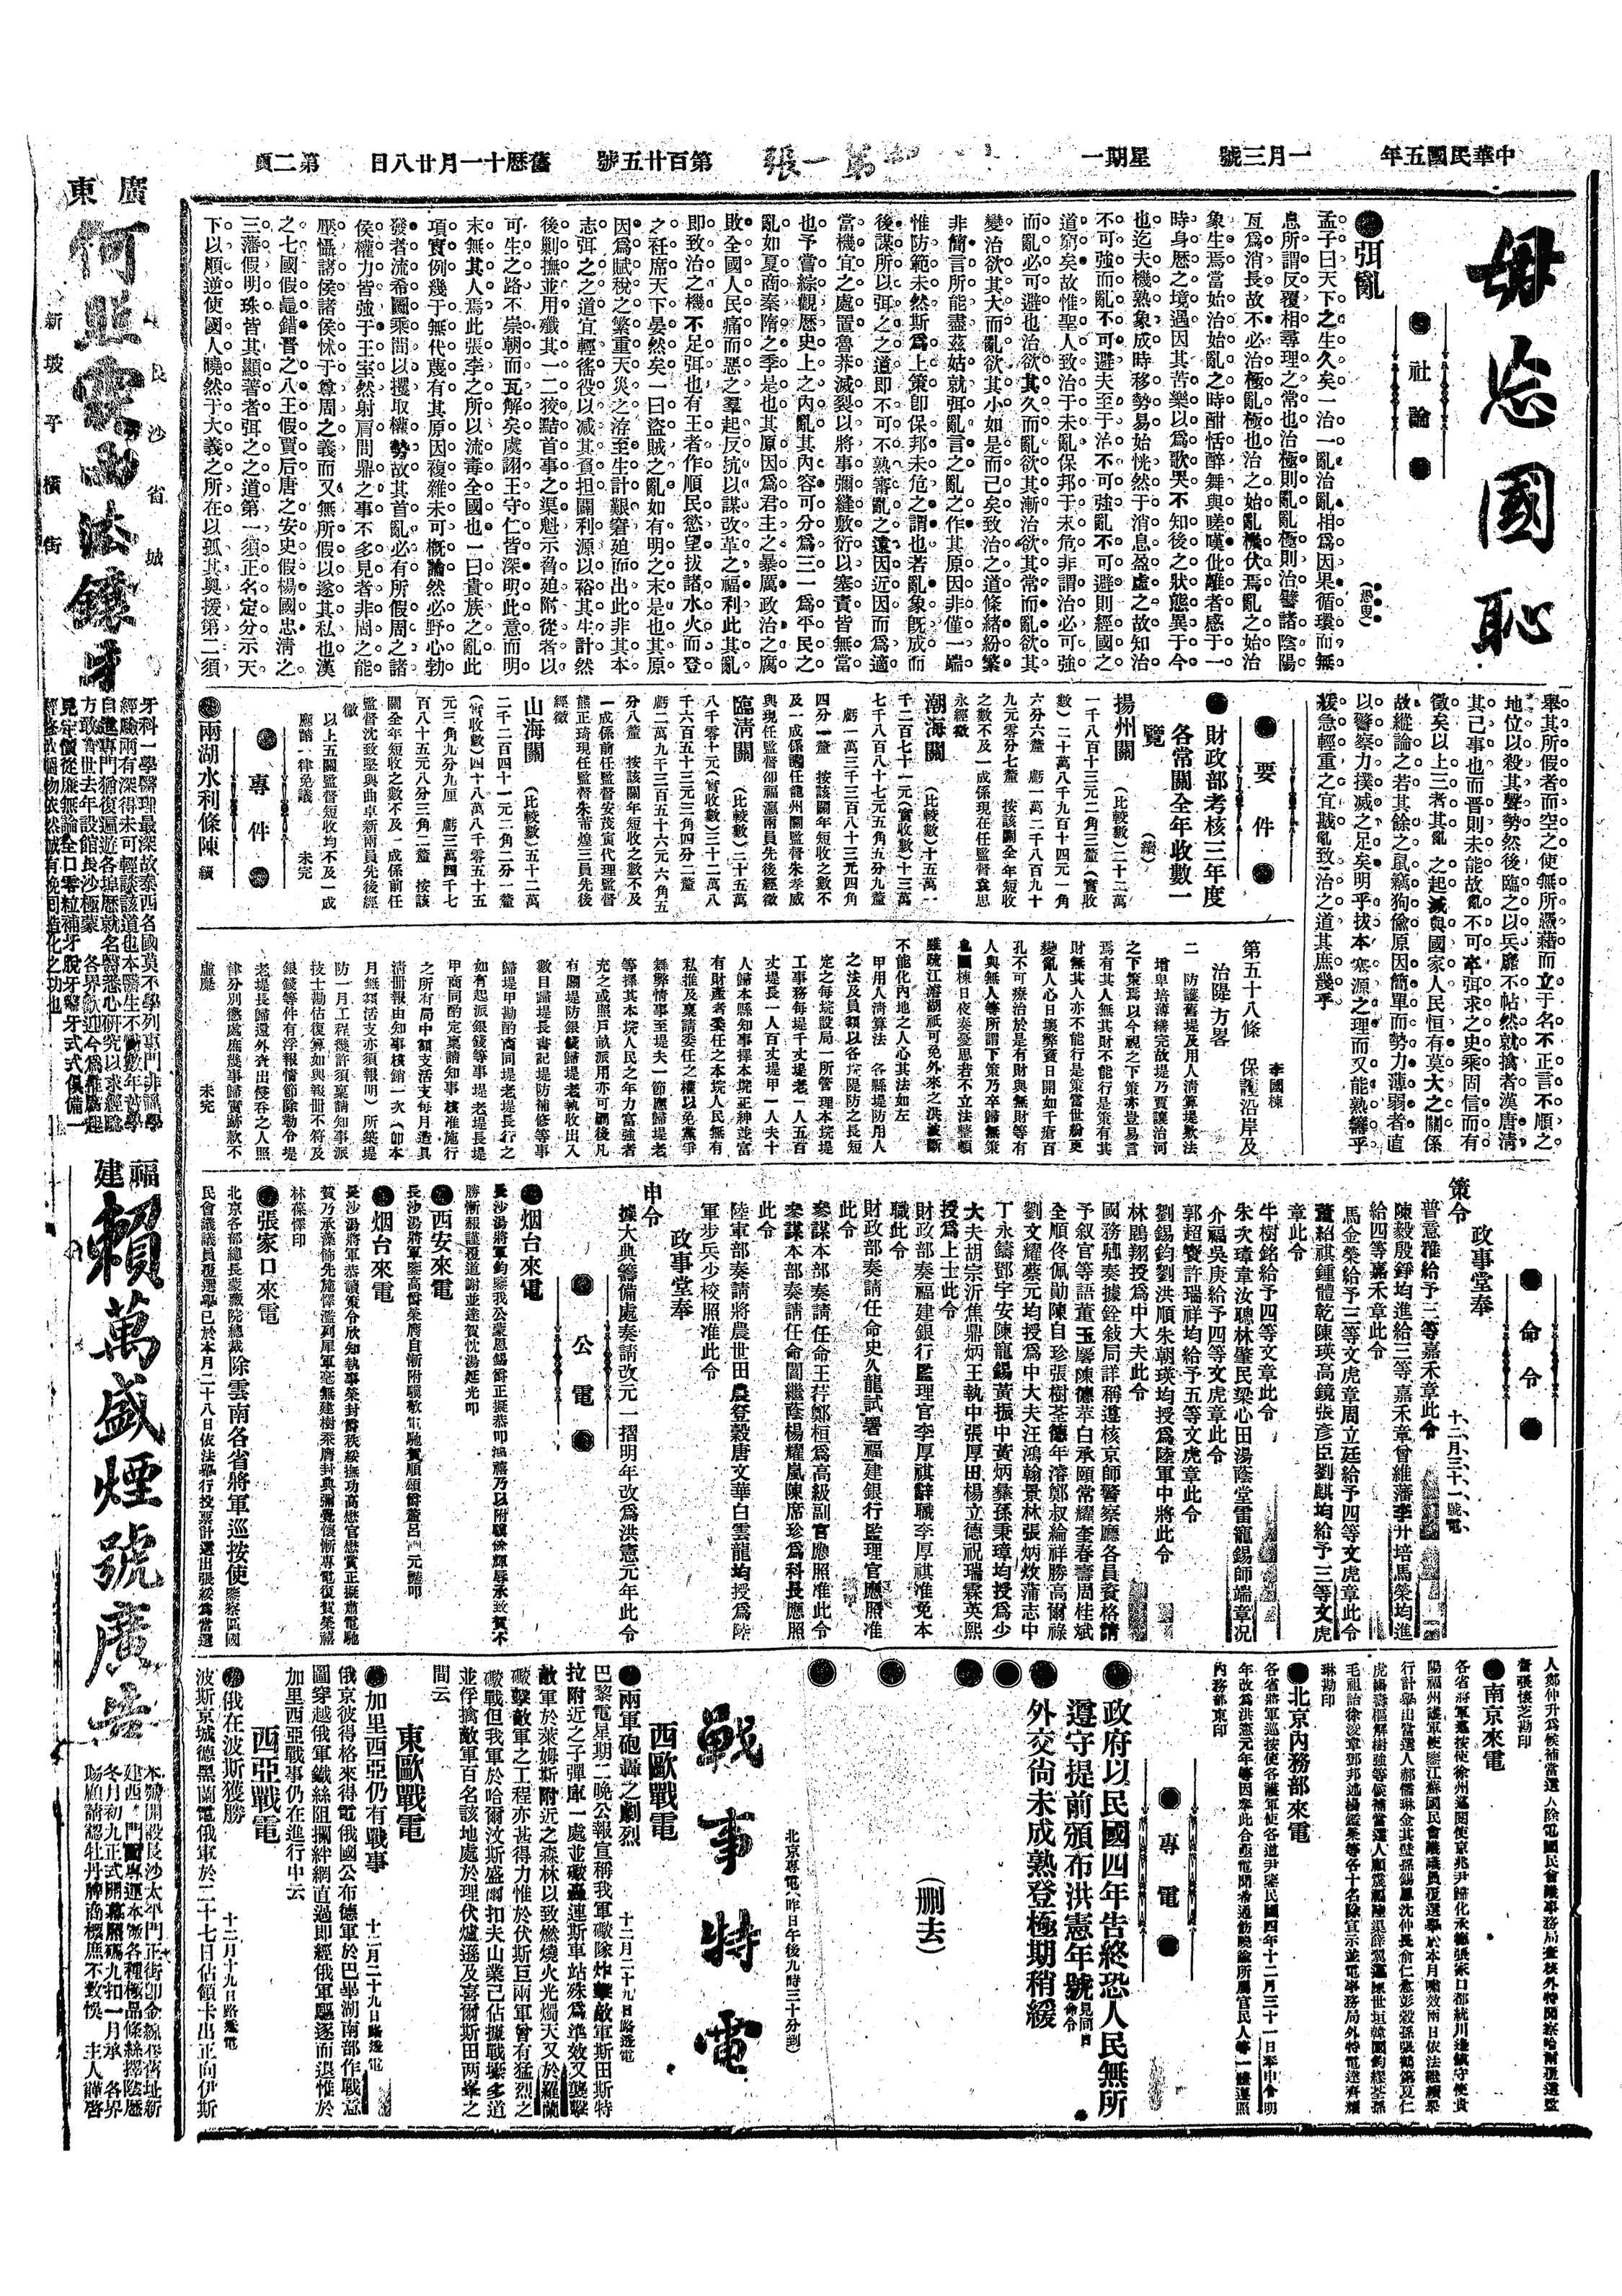 中華民國五年
一月三號
星期一
第一張
第百廿五號
舊曆十一月廿八日
第二頁
毋忘國恥
社論
弭亂
(愚叟)
孟子曰天下之生久矣一治一亂治亂相為因果循環而無
息所謂反覆相尋理之常也治極則亂亂極則治譬諸陰陽
互為消長故不必治極亂極也治之始亂機伏焉亂之始治
象生焉當始治始亂之時酣恬醉舞與嗟嘆仳離者感于一
時身歷之境遇因其苦樂以為歌哭不知後之狀態異于今
也迄夫機熟象成時移勢易始恍然于消息盈虛之故知治
不可強而亂不可避夫至于治不可強亂不可避則經國之
道窮矣故惟聖人致治于未亂保邦于未危非謂治必可強
而亂必可避也治欲其久而亂欲其漸治欲其常而亂欲其
變治欲其大而亂欲其小如是而已矣致治之道條緒紛繁
非簡言所能盡茲姑就弭亂言之亂之作其原因非僅一端
惟防範未然斯為上策即保邦未危之謂也若亂象既成而
後謀所以弭之之道即不可不熟審亂之遠因近因而為適
當機宜之處置魯莽滅裂以將事彌縫敷衍以塞責皆無當
也予嘗綜觀歷史上之內亂其內容可分為三一為平民之
亂如夏商秦隋之季是也其原因為君主之暴厲政治之腐
敗全國人民痛而惡之羣起反抗以謀改革之福利此其亂
即致治之機不足弭也有王者作順民慾望拔諸水火而登
之衽席天下晏然矣一曰盜賊之亂如有明之末是也其原
因為賦稅之繁重天災之洊至生計艱窘廹而出此非其本
志弭之之道宜輕徭役以減其負担闢利源以裕其生計然
後剿撫並用殲其一二狡黠首事之渠魁示脅廹附從者以
可生之路不崇朝而瓦解矣虞詡王守仁皆深明此意而明
末無其人焉此張李之所以流毒全國也一曰貴族之亂此
項實例幾于無代蔑有其原因複雜未可概論然必野心勃
發者流希圖乘間以攫取權勢故其首亂必有所假周之諸
侯權力皆強于王室然射肩問鼎之事不多見者非周之能
壓懾諸侯諸侯怵于尊周之義而又無所假以遂其私也漢
之七國假鼂錯晉之八王假賈后唐之安史假楊國忠清之
三藩假明珠皆其顯著者弭之之道第一須正名定分示天
下以順逆使國人曉然于大義之所在以孤其與援第二須
舉其所假者而空之使無所憑藉而立于名不正言不順之
地位以殺其聲勢然後臨之以兵靡不帖然就擒者漢唐清
其已事也而晋則未能故亂不可卒弭求之史乘固信而有
徵矣以上三者其亂之起滅與國家人民恒有莫大之關係
故縱論之若其餘之鼠竊狗偷原因簡單而勢力薄弱者直
以警察力撲滅之足矣明乎拔本塞源之理而又能熟籌乎
緩急輕重之宜戡亂致治之道其庶幾乎
要件
財政部考核三年度
各常關全年收數一
覽
(續)
揚州關
(比較數)二十二萬
一千八百十三元二角三釐(實收
數)二十萬八千九百十四元一角
六分六釐　虧一萬二千八百九十
九元零分七釐　按該關全年短收
之數不及一成係現在任監督袁思
永經徵
潮海關
(比較數)十五萬一
千二百七十一元(實收數)十三萬
七千八百八十七元五角五分九釐
虧一萬三千三百八十三元四角
四分一釐　按該關年短收之數不
及一成係調任龍州關監督朱孝威
與現任監督卻福瀛兩員先後經徵
臨清關
(比較數)二十五萬
八千零十元(實收數)三十二萬八
千六百五十三元三角四分二釐
虧二萬九千三百五十六元六角五
分八釐　按該關年短收之數不及
一成係前任監督安茂寅代理監督
熊正琦現任監督朱芾煌三員先後
經徵
山海關
(比較數)五十二萬
二千二百四十一元二角二分一釐
(實收數)四十八萬八千零五十五
元三角九分九厘　虧三萬四千七
百八十五元八分三角二釐　按該
關全年短收之數不及一成係前任
監督沈致堅與曲卓新兩員先後經
徵
以上五關監督短收均不及一成
應請一律免議　未完
專件
兩湖水利條陳　續
李國棟
第五十八條　保護沿岸及
治隄方畧
二　防護舊堤及用人清算堤欵法
增卑培薄繕完故堤乃賈讓治河
之下策焉以今視之下策亦豈易言
焉有其人無其財不能行是策有其
財無其人亦不能行是策當世紛更
變亂人心日壞弊竇日開如千瘡百
孔不可療治於是有財與無財等有
人與無人等所謂下策乃卒歸無策
國棟日夜奏憂思若不立法整頓
雖疏江濬湖祇可免外來之洪議斷
不能化內地之人心其法如左
甲用人清算法　各縣堤防用人
之法及員額以各垸隄防之長短
定之每垸設局一所管理本垸堤
工事務每堤千丈堤老一人五百
丈堤長一人百丈堤甲一人夫十
人歸本縣知事擇本垸正紳並富
有財產者委任之本垸人民無有
私推及稟請委任之權以免黨爭
舞弊情事至堤夫一節應歸堤老
等擇其本垸人民之年力富強者
充之或照戶畝派用亦可嗣後凡
有關堤防銀錢歸堤老執收出入
數目歸堤長書記堤防補修等事
歸堤甲勘酌商同堤老堤長行之
如有起派銀錢等事堤老堤長堤
甲商同酌定稟請知事核准施行
之所有局中額支活支每月造具
清冊報由知事核銷一次(如本
月無額活支亦須報明)所築堤
防一月工程幾許須稟請知事派
技士勘估復算如與報冊不符及
銀錢等件有浮報情節除勒令堤
老堤長歸還外查出侵吞之人照
律分別懲處庶幾事歸實跡款不
虛糜　未完
命令
十二月三十一號電
政事堂奉
策令
普意雅給予三等嘉禾章此令
陳毅殷錚均進給三等嘉禾章曾維藩李廾培馬榮均進
給四等嘉禾章此令
馬金榮給予三等文虎章周立廷給予四等文虎章此令
蕭紹祺鍾體乾陳瑛高鏡張彥臣劉麒均給予三等文虎
章此令
牛樹銘給予四等文章此令
朱次璋韋汝聰林肇民梁心田湯蔭堂雷寵錫師端章况
介福吳庚給予四等文虎章此令
郭超寰許瑞祥均給予五等文虎章此令
劉錫鈞劉洪順朱朝瑛均授為陸軍中將此令
林鵾翔授為中大夫此令
國務卿奏據銓敍局詳稱遵核京師警察廳各員資格請
予叙官等語董玉麐陳德萃白承頤常耀奎春壽周桂斌
全順佟佩勛陳自珍張樹荃德年濬鄭叔綸祥勝高爾祿
劉文耀蔡元均授為中大夫汪鴻翰景林張炳炆蒲志中
丁永鑄鄧宇安陳龍錫黃振中黃炳彝孫秉璋均授為少
大夫胡宗沂焦鼎炳王執中張厚田楊立德祝瑞霖英熙
授為上士此令
財政部奏福建銀行監理官李厚祺辭職李厚祺准免本
職此令
財政部奏請任命史久龍試署福建銀行監理官應照准
此令
參謀本部奏請任命王荇鄭桓為高級副官應照准此令
參謀本部奏請任命闇繼蔭楊耀嵐陳席珍為科長應照
此令
陸軍部奏請將農世田農登穀唐文華白雲龍均授為陸
軍步兵少校照准此令
政事堂奉
申令
據大典籌備處奏請改元一摺明年改為洪憲元年此令
公電
烟台來電
長沙湯將軍鈞鑒我公蒙恩錫爵正擬恭叩鴻禧乃以附驥餘輝辱承致賀不
勝慚赧謹覆道謝並達賀忱湯延光叩
西安來電
長沙湯將軍鑒高爵榮膺自慚附驥敬電馳賀順頌爵釐呂　元豔叩
烟台來電
長沙湯將軍恭讀策令欣知執事榮封爵秩綏撫功高懋官懋賞正擬肅電馳
賀乃承藻飾先施慚濫列屏軍毫無建樹忝膺封典彌覺懷慚專電復賀榮禧
林葆懌印
張家口來電
北京各部總長蒙藏院總裁除雲南各省將軍巡按使鑒察區國
民會議議員覆選舉已於本月二十八日依法舉行投票計選出張綏為當選
人鄭仲升為候補當選人除電國民會議事務局查核外特聞察哈爾覆選監
督張懷芝勘印
南京來電
各省將軍巡按使徐州巡閱使京兆尹歸化承德張家口都統川邊鎮守使貴
陽福州護軍使鑒江蘇國民會議議員覆選舉於本月
毛祖詒徐浚章鄧邦述楊鑑榮等各十名除宣示並電事務局外特電達齊燿
琳勘印
北京內務部來電
各省將軍巡按使各護軍使各道尹鑒民國四年十二月三十一日奉申令明
年改為洪憲元年等因奉此合亟電聞希通飭曉諭所屬官民人等一體遵照
內務部東印
專電
政府以民國四年告終恐人民無所
遵守提前頒布洪憲年號見同日命令
外交尙未成熟登極期稍緩
(刪去)
北京專電(昨日午後九時三十分到)
戰事特電
西歐戰電
兩軍砲轟之劇烈
十二月二十九日路透電
巴黎電星期二晚公報宣稱我軍礮隊炸擊敵軍斯田斯特
拉附近之子彈庫一處並礮轟連斯車站殊為準效又襲擊
敵軍於萊姆斯附近之森林以致燃燒火光燭天又於羅蘭
礮擊敵軍之工程亦甚得力惟於伏斯巨兩軍曾有猛烈之
礮戰但我軍於哈爾汶斯盛爾扣夫山業已佔據戰壕多道
並俘擒敵軍百名該地處於理伏爐遜及喜爾斯田兩峯之
間云
東歐戰電
加里西亞仍有戰事
十二月二十九日路透電
俄京彼得格來得電俄國公布德軍於巴舉湖南部作戰意
圖穿越俄軍鐵絲阻攔絆網直過即經俄軍驅逐而退惟於
加里西亞戰事仍在進行中云
西亞戰電
俄在波斯獲勝
十二月十九日路透電
波斯京城德黑蘭電俄軍於二十七日佔領卡出正向伊斯
廣東
何芷雲西法鑲牙
長沙省城
新坡子橫街
牙科一學醫理最深故泰西各國莫不學列專門非謂學
經驗兩有深得未可輕談該道也本醫生不憚數年苦學
自進專門猶復遍遊各埠歷就名醫悉心研究以求經驗
方敢曾世去年設館長沙極蒙　各界歡迎今為推廣起
見定價從廉無論全口零粒補牙脫牙鑿牙式式俱備一
經修改飾物依然誠有挽回造化之功也
福建
賴萬盛煙號廣告
本號開設長沙太平門正街卽金線巷舊址新
建西門面專運本廠各種極品條絲擇陰歷
冬月初九正式開幕照碼九扣一月承　各界
賜顧請認牡丹牌商標庶不致悞　主人謹啓